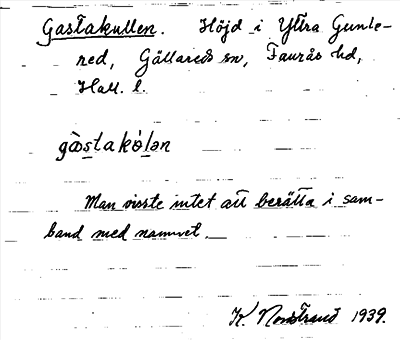 Gastakullen. Höjd i Yttra Gunne-
red, Gällareds sn, Faurås hd,
Hall. l.
gàstakólən
Man visste intet att berätta i sam-
band med namnet.
K. Nordstrand 1939.